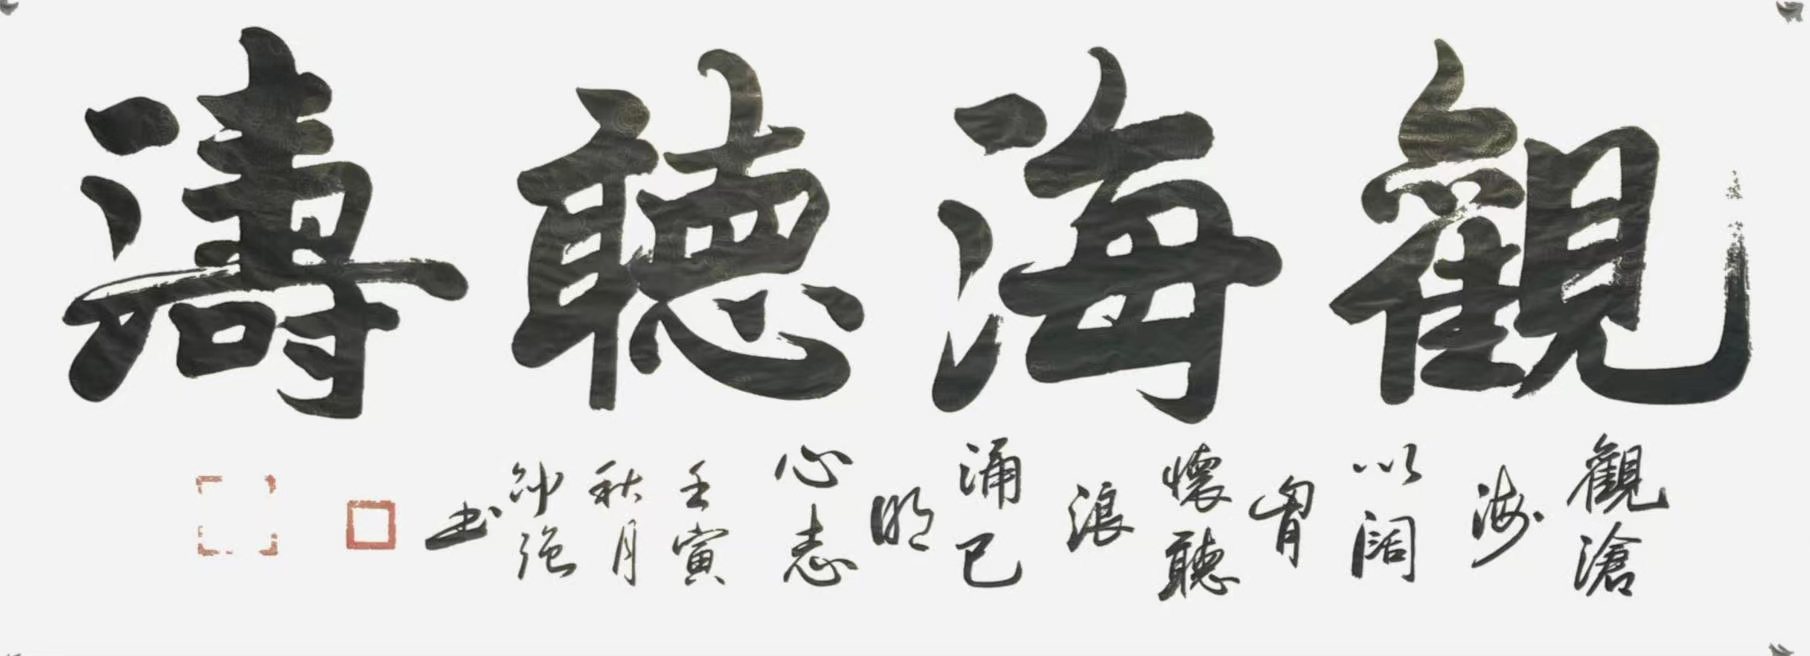 觀海聽濤
觀滄
海
以闊
胷
懷聽
浪
涌已
明
心志
壬寅
秋月
强
书